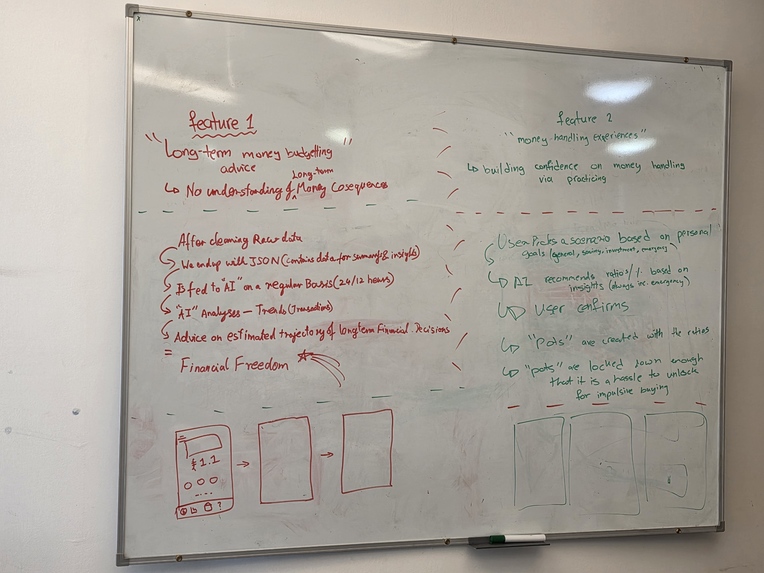 feature 1
"Long-term money budgetting
advice"
Long-term
↳ No understanding of ^ Money Cosequences
After cleaning Raw data
We end up with JSON (contains data for summary & insights)
Is fed to "AI" on a regular Basis (24/12 hours)
"AI" Analyses — Trends (Transactions)
Advice on estimated trajectory of longterm Financial Decisions
=
Financial Freedom
1.2
feature 2
"money-handling experiences"
↳ building confidence on money handling
via practicing
User Picks a scenario based on personal
goals (general, saving, investment, emergency)
AI recommends ratios/% based on
insights (always inc. emergency)
User confirms
"Pots" are created with the ratios
"pots" are locked down enough
that it is a hassle to unlock
for impulsive buying